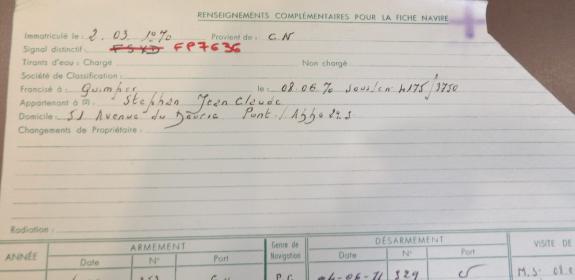 RENSEIGNEMENTS COMPLÉMENTAIRES POUR LA FICHE NAVIRE
Immatriculé le : 2. 03. 1970 Provient de : C.N
Signal distinctif : FP7636
Tirants d'eau : Chargé Non chargé
Société de Classification :
Francisé à : Quimper le : 08.06.70 sous/en 4175/3750
Appartenant à M : Stephan Jean Claude
Domicile : 51 Avenue du Pont / Abbé
Changements de Propriétaire :
Radiation :
ANNÉE ARMEMENT Genre de Navigation DÉSARMEMENT VISITE DE
Date N° Port Date N° Port
P.C 04-06-71 329 M.S.